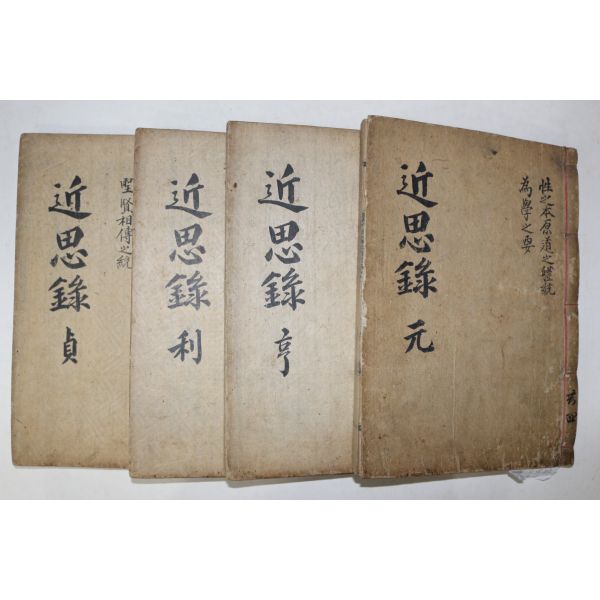 近思錄 元
性之本原道之體統
為學之要
共四
近思錄 亨
近思錄 利
近思錄 貞
聖賢相傳之統